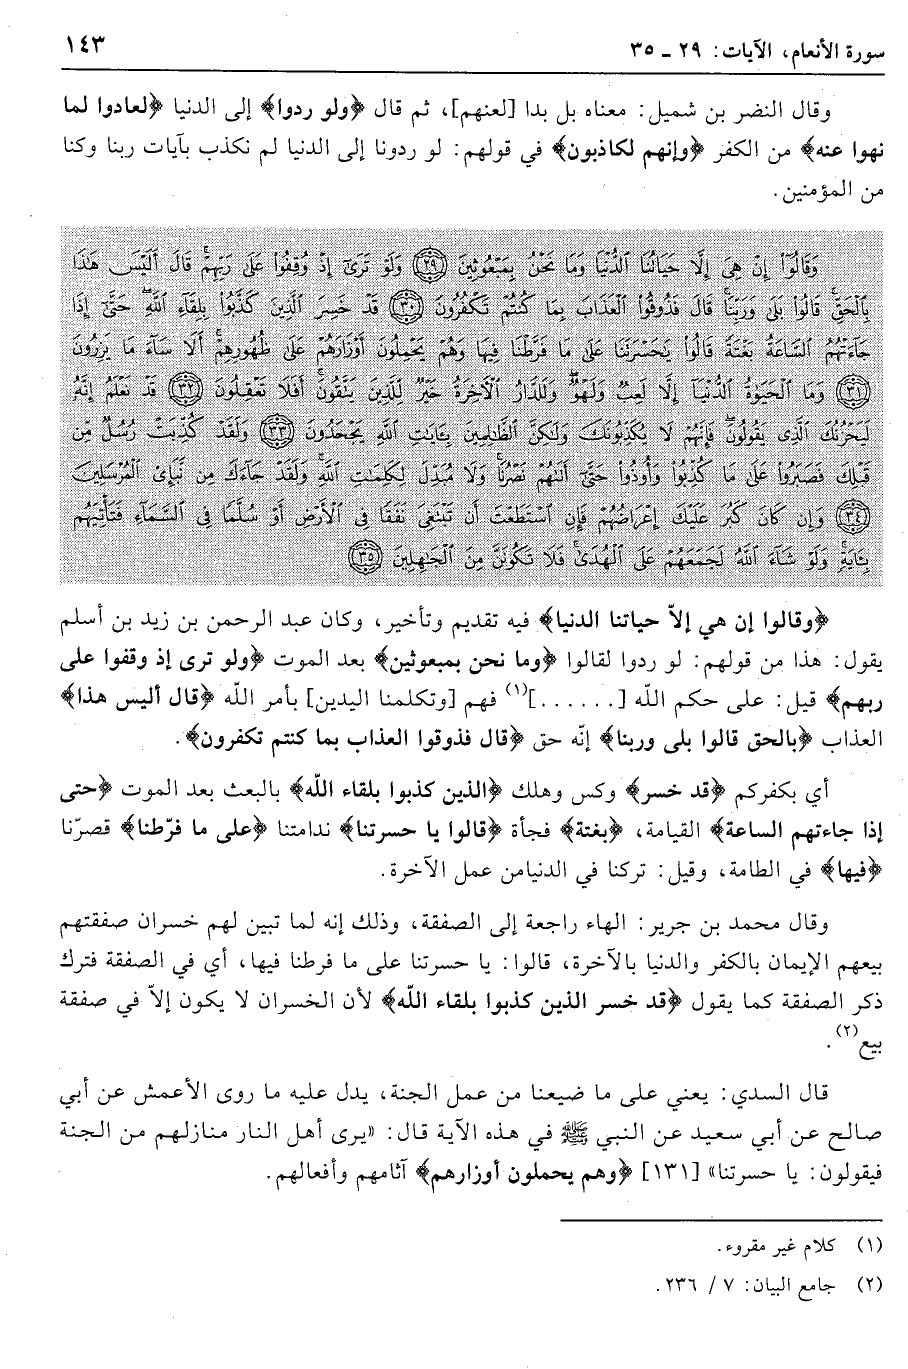 سورة الأنعام، الآيات: ٢٩ ـ ٣٥
١٤٣
وقال النضر بن شميل: معناه بل بدا [لعنهم]، ثم قال ﴿ولو ردوا﴾ إلى الدنيا ﴿لعادوا لما
نهوا عنه﴾ من الكفر ﴿وإنهم لكاذبون﴾ في قولهم: لو ردونا إلى الدنيا لم نكذب بآيات ربنا وكنا
من المؤمنين.
وَقَالُوٓا۟ إِنْ هِىَ إِلَّا حَيَاتُنَا ٱلدُّنْيَا وَمَا نَحْنُ بِمَبْعُوثِينَ ﴿٢٩﴾ وَلَوْ تَرَىٰٓ إِذْ وُقِفُوا۟ عَلَىٰ رَبِّهِمْ ۚ قَالَ أَلَيْسَ هَـٰذَا
بِٱلْحَقِّ ۚ قَالُوا۟ بَلَىٰ وَرَبِّنَا ۚ قَالَ فَذُوقُوا۟ ٱلْعَذَابَ بِمَا كُنتُمْ تَكْفُرُونَ ﴿٣٠﴾ قَدْ خَسِرَ ٱلَّذِينَ كَذَّبُوا۟ بِلِقَآءِ ٱللَّهِ ۖ حَتَّىٰٓ إِذَا
جَآءَتْهُمُ ٱلسَّاعَةُ بَغْتَةً قَالُوا۟ يَـٰحَسْرَتَنَا عَلَىٰ مَا فَرَّطْنَا فِيهَا وَهُمْ يَحْمِلُونَ أَوْزَارَهُمْ عَلَىٰ ظُهُورِهِمْ ۚ أَلَا سَآءَ مَا يَزِرُونَ
﴿٣١﴾ وَمَا ٱلْحَيَوٰةُ ٱلدُّنْيَآ إِلَّا لَعِبٌ وَلَهْوٌ ۖ وَلَلدَّارُ ٱلْـَٔاخِرَةُ خَيْرٌ لِّلَّذِينَ يَتَّقُونَ ۗ أَفَلَا تَعْقِلُونَ ﴿٣٢﴾ قَدْ نَعْلَمُ إِنَّهُۥ
لَيَحْزُنُكَ ٱلَّذِى يَقُولُونَ ۖ فَإِنَّهُمْ لَا يُكَذِّبُونَكَ وَلَـٰكِنَّ ٱلظَّـٰلِمِينَ بِـَٔايَـٰتِ ٱللَّهِ يَجْحَدُونَ ﴿٣٣﴾ وَلَقَدْ كُذِّبَتْ رُسُلٌ مِّن
قَبْلِكَ فَصَبَرُوا۟ عَلَىٰ مَا كُذِّبُوا۟ وَأُوذُوا۟ حَتَّىٰٓ أَتَىٰهُمْ نَصْرُنَا ۚ وَلَا مُبَدِّلَ لِكَلِمَـٰتِ ٱللَّهِ ۚ وَلَقَدْ جَآءَكَ مِن نَّبَإِى۟ ٱلْمُرْسَلِينَ
﴿٣٤﴾ وَإِن كَانَ كَبُرَ عَلَيْكَ إِعْرَاضُهُمْ فَإِنِ ٱسْتَطَعْتَ أَن تَبْتَغِىَ نَفَقًا فِى ٱلْأَرْضِ أَوْ سُلَّمًا فِى ٱلسَّمَآءِ فَتَأْتِيَهُم
بِـَٔايَةٍ ۚ وَلَوْ شَآءَ ٱللَّهُ لَجَمَعَهُمْ عَلَى ٱلْهُدَىٰ ۚ فَلَا تَكُونَنَّ مِنَ ٱلْجَـٰهِلِينَ ﴿٣٥﴾
﴿وقالوا إن هي إلاّ حياتنا الدنيا﴾ فيه تقديم وتأخير، وكان عبد الرحمن بن زيد بن أسلم
يقول: هذا من قولهم: لو ردوا لقالوا ﴿وما نحن بمبعوثين﴾ بعد الموت ﴿ولو ترى إذ وقفوا على
ربهم﴾ قيل: على حكم اللّه [......](١) فهم [وتكلمنا اليدين] بأمر اللّه ﴿قال أليس هذا﴾
العذاب ﴿بالحق قالوا بلى وربنا﴾ إنّه حق ﴿قال فذوقوا العذاب بما كنتم تكفرون﴾.
أي بكفركم ﴿قد خسر﴾ وكس وهلك ﴿الذين كذبوا بلقاء اللّه﴾ بالبعث بعد الموت ﴿حتى
إذا جاءتهم الساعة﴾ القيامة، ﴿بغتة﴾ فجأة ﴿قالوا يا حسرتنا﴾ ندامتنا ﴿على ما فرّطنا﴾ قصرّنا
﴿فيها﴾ في الطامة، وقيل: تركنا في الدنيامن عمل الآخرة.
وقال محمد بن جرير: الهاء راجعة إلى الصفقة، وذلك إنه لما تبين لهم خسران صفقتهم
بيعهم الإيمان بالكفر والدنيا بالآخرة، قالوا: يا حسرتنا على ما فرطنا فيها، أي في الصفقة فترك
ذكر الصفقة كما يقول ﴿قد خسر الذين كذبوا بلقاء اللّه﴾ لأن الخسران لا يكون إلاّ في صفقة
بيع(٢).
قال السدي: يعني على ما ضيعنا من عمل الجنة، يدل عليه ما روى الأعمش عن أبي
صالح عن أبي سعيد عن النبي ﷺ في هذه الآية قال: «يرى أهل النار منازلهم من الجنة
فيقولون: يا حسرتنا» [١٣١] ﴿وهم يحملون أوزارهم﴾ آثامهم وأفعالهم.
(١) كلام غير مقروء.
(٢) جامع البيان: ٧ / ٢٣٦.